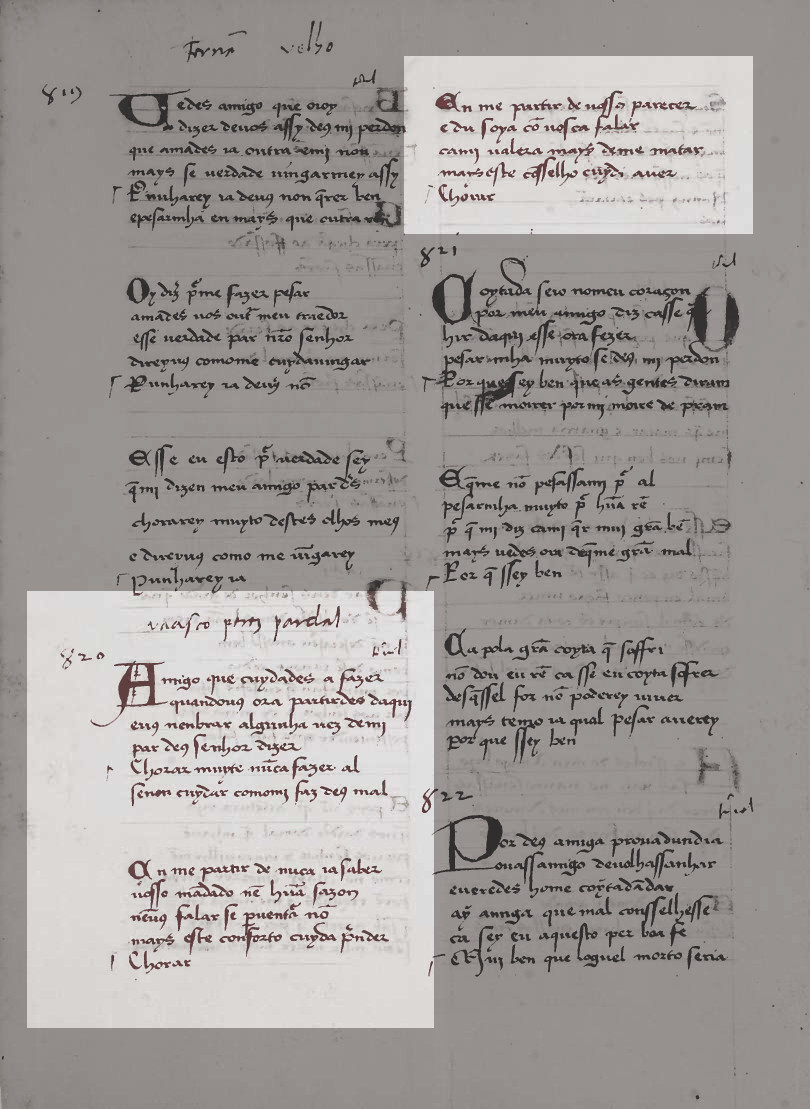 Fernã velho
819
Vedes amigo que oioy
dizer deuos assy de9 mi perdon
que amades ia outra emi non
mays se uerdade uingarmey assy
Punharey ia deuos non q̄rer ben
epesarmha en mays que outra rē
Oy diz̄ p̄me fazer pesar
amades uos out̄ meu traedor
esse uerdade par nr̄o senhor
direyu9 comome cuydauingar
Punharey ia deu9 nō
Esse eu esto p̄ uerdade sey
q̄mi dizen meu amigo par d's
chorarey muyto destes olhos me9
e direyu9 como me uīgarey
Punharey ia
uaasco pr̄ez pardal
820
Amigo que cuydades a fazer
quandou9 ora partirdes daqui
eu9 nenbrar algunha uez demi
par de9 senhor dizer
Chorar muyte nūca fazer al
senon cuydar comomi faz de9 mal
An me partir de nuca ia saber
uosso mādado nē hūa sazon
neu9 falar se puentā nō
mays este conforto cuyda p̄nder
Chorar
An me partir de uosso parecer
e du soya cō uosca falar
cami ualera mays deme matar
mays este cōsselho cuydi auer
Chorar
821
Coytada seio nomeu coraçon
por meu amigo diz casse q̄
hir daqui esse ora fezer
pesar mha muyto se de9 mi perdon
Por que sey ben que as gentes diram
que sse moirer por mi moire de pram
E q̄me nō pesassami p̄ al
pesarmha muyto p̄ hūa rē
p̄ q̄ mi diz cami q̄r mui grā bē
mays uedes ora deq̄me grā mal
Por q̄ ssey ben
Ca pola grā coyta q̄ soffri
nō dou eu rē ca sse eu coyta sofrer
desq̄ssel for nō poderey uiuer
mays tenio ia qual pesar auerey
por que ssey ben
822
Por de9 amiga prouadundia
ouassamigo deuolhassanhar
eueredes home coytadādar
ay amiga que mal consselhesse
ca sey eu aquesto per boa fe
Mui ben que loguel morto seria